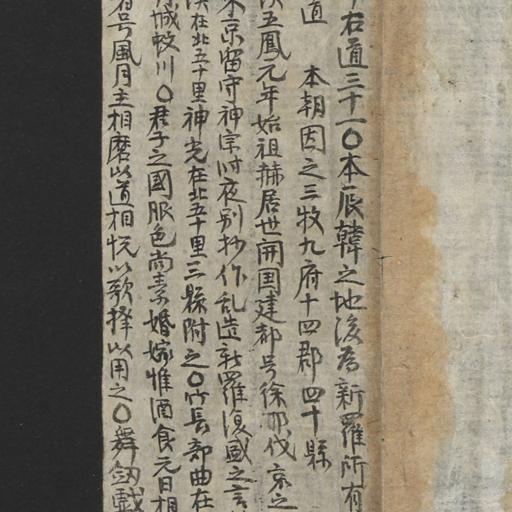 右道三十一〇本辰韓之地後為新羅所有
道 本朝因之三牧九府十四郡四十縣
五鳳元年始祖赫居世開国建都号徐那伐京之
京留守神宗时夜別抄作乱造新羅復盛之言
在北五十里神光在北五十里三縣附之〇竹長部曲在
城蚊川〇君子之國服色尚素婚嫁惟酒食元日相
号風月主相磨以道相悅以歌擇以用之〇舞劒戱